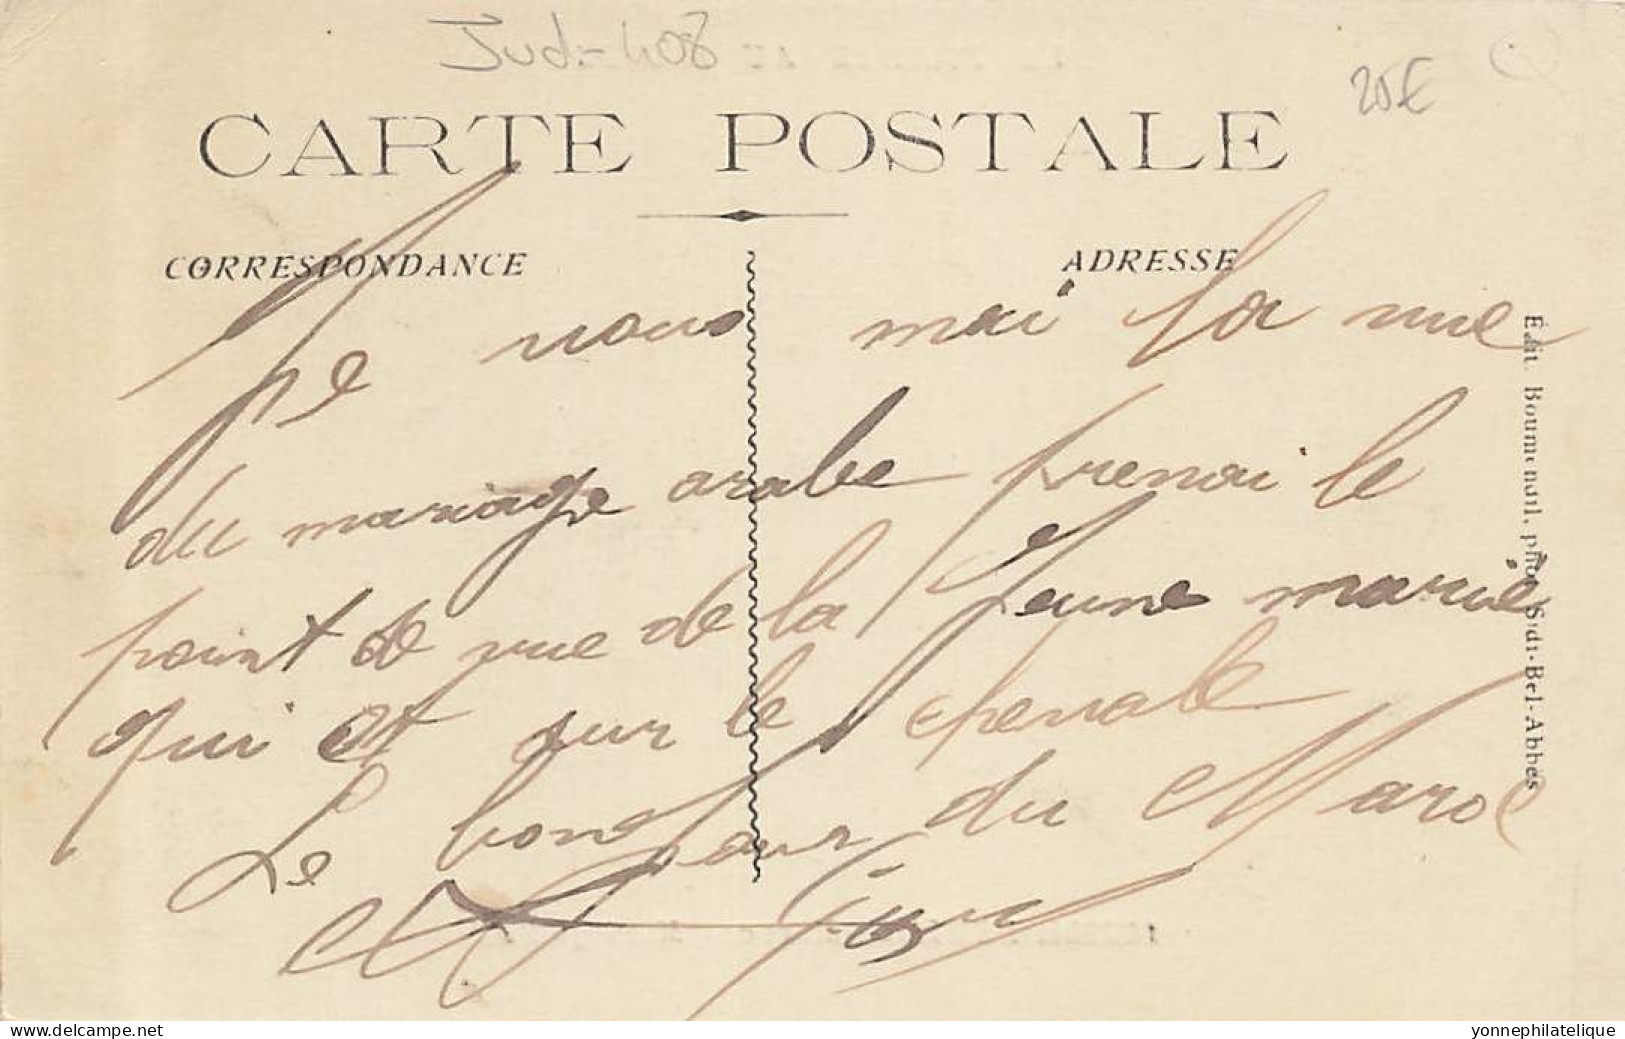 Jud-408
20€
CARTE POSTALE
CORRESPONDANCE
ADRESSE
Je vous mai la vue
du mariage arabe prenai le
point de vue de la Jeune marié
qui et sur le chevale
Le bonjour du Maroc
Édit. Boumendil, phot. Sidi-Bel-Abbès
delcampe.net
yonnephilatelique